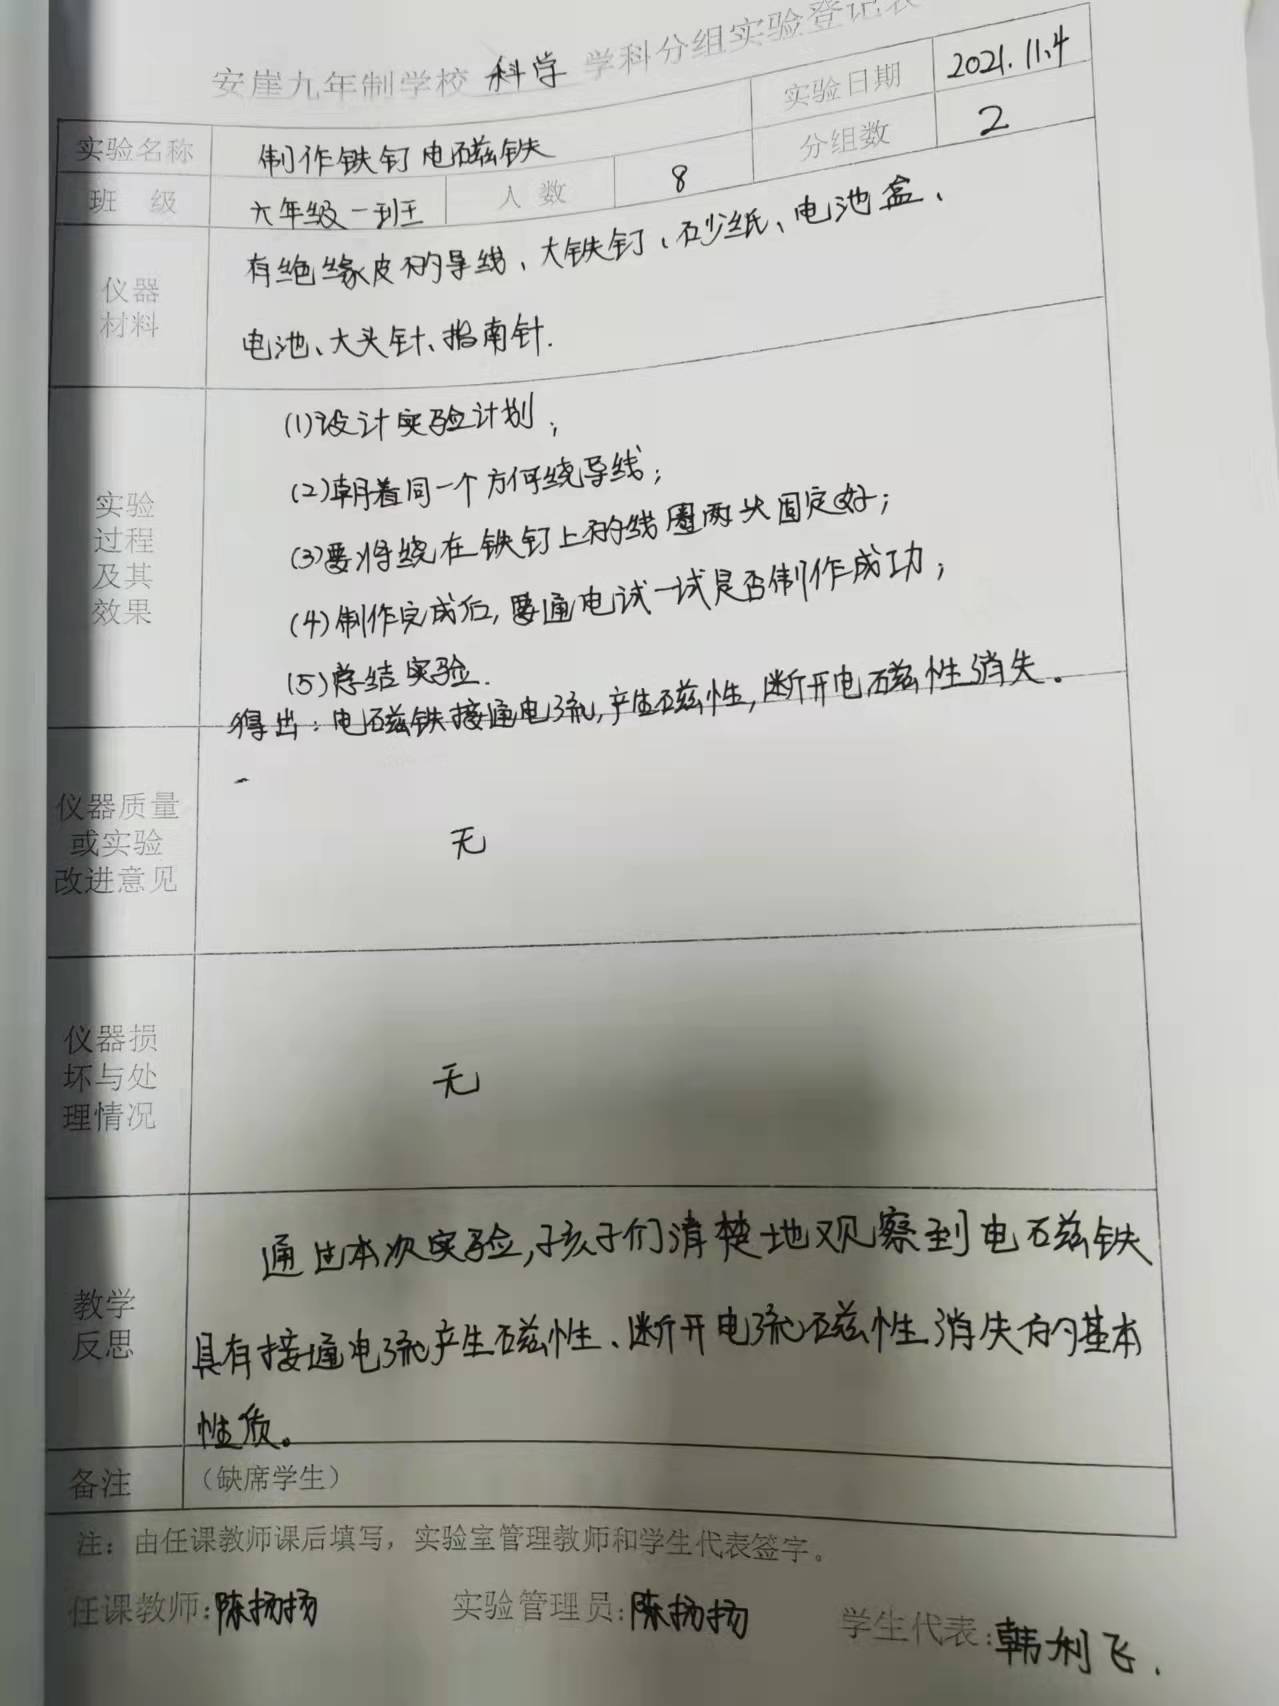 安崖九年制学校 科学 学科分组实验登记表
实验名称 制作铁钉电磁铁 实验日期 2021.11.4
班 级 六年级一班 人 数 8 分组数 2
仪器
材料
有绝缘皮的导线、大铁钉、砂纸、电池盒、
电池、大头针、指南针.
实验
过程
及其
效果
(1)设计实验计划；
(2)朝着同一个方向绕导线；
(3)要将绕在铁钉上的线圈两头固定好；
(4)制作完成后,要通电试一试是否制作成功；
(5)总结实验.
得出：电磁铁接通电流,产生磁性,断开电磁性消失。
仪器质量
或实验
改进意见
无
仪器损
坏与处
理情况
无
教学
反思
通过本次实验,孩子们清楚地观察到电磁铁
具有接通电流产生磁性、断开电流磁性消失的基本
性质。
备注 （缺席学生）
注：由任课教师课后填写，实验室管理教师和学生代表签字。
任课教师:陈扬扬 实验管理员:陈扬扬 学生代表:韩利飞.